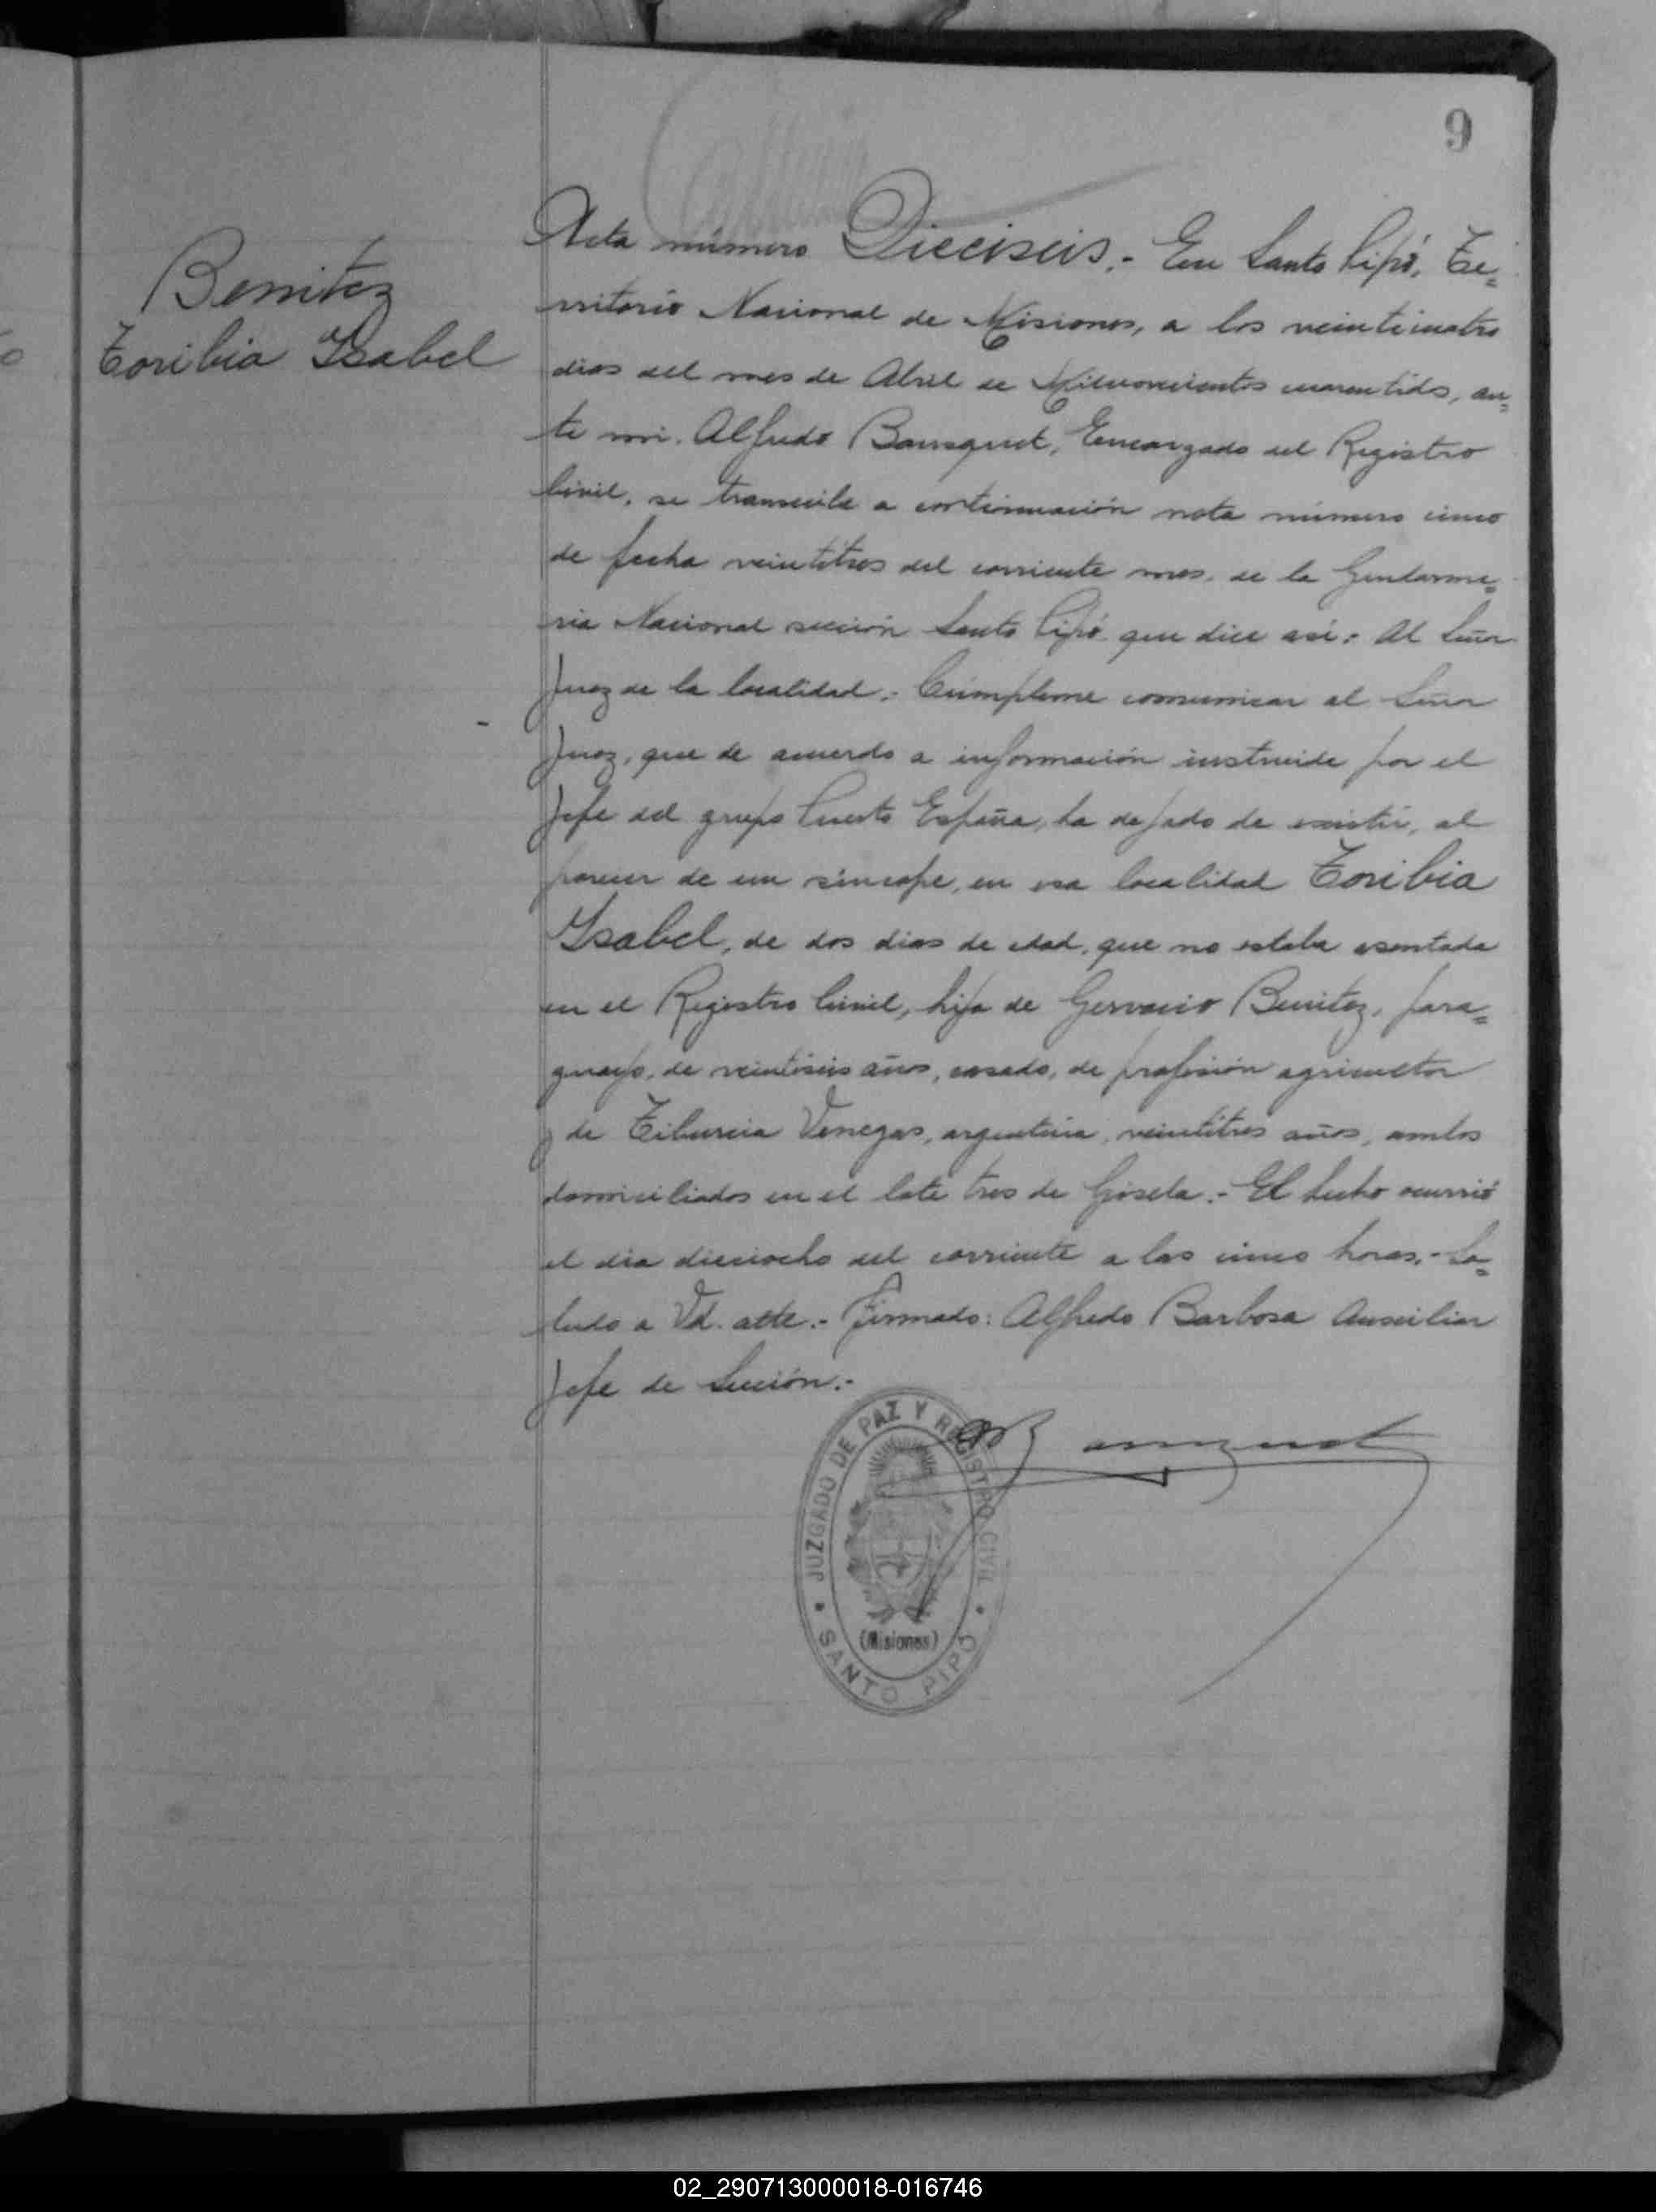 9
Benitez
Toribia Ysabel
Acta número Dieciseis.- En Santo Pipó, Te=
rritorio Nacional de Misiones, a los veinticuatro
dias del mes de Abril de Milnovecientos cuarentidos, an=
te mi. Alfredo Bousquet, Encargado del Registro
Civil, se transcribe a continuación nota número cinco
de fecha veintitres del corriente mes, de la Gendarme=
ria Nacional sección Santo Pipó que dice asi:- Al Señor
Juez de la localidad.- Cúmpleme comunicar al Señor
Juez, que de acuerdo a información instruida por el
Jefe del grupo Puerto España, ha dejado de existir, al
parecer de un síncope, en esa localidad Toribia
Ysabel, de dos dias de edad, que no estaba asentada
en el Registro Civil, hija de Gervacio Benitez, para=
guayo, de veintiseis años, casado, de profesión agricultor
y de Tiburcia Venegas, argentina, veintitres años, ambos
domiciliados en el lote tres de Gisela.- El hecho ocurrió
el dia dieciocho del corriente a las cinco horas.- Sa=
ludo a Vd. atte.- Firmado: Alfredo Barbosa Auxiliar
Jefe de Sección.-
JUZGADO DE PAZ Y REGISTRO CIVIL
(Misiones)
SANTO PIPÓ
02_290713000018-016746